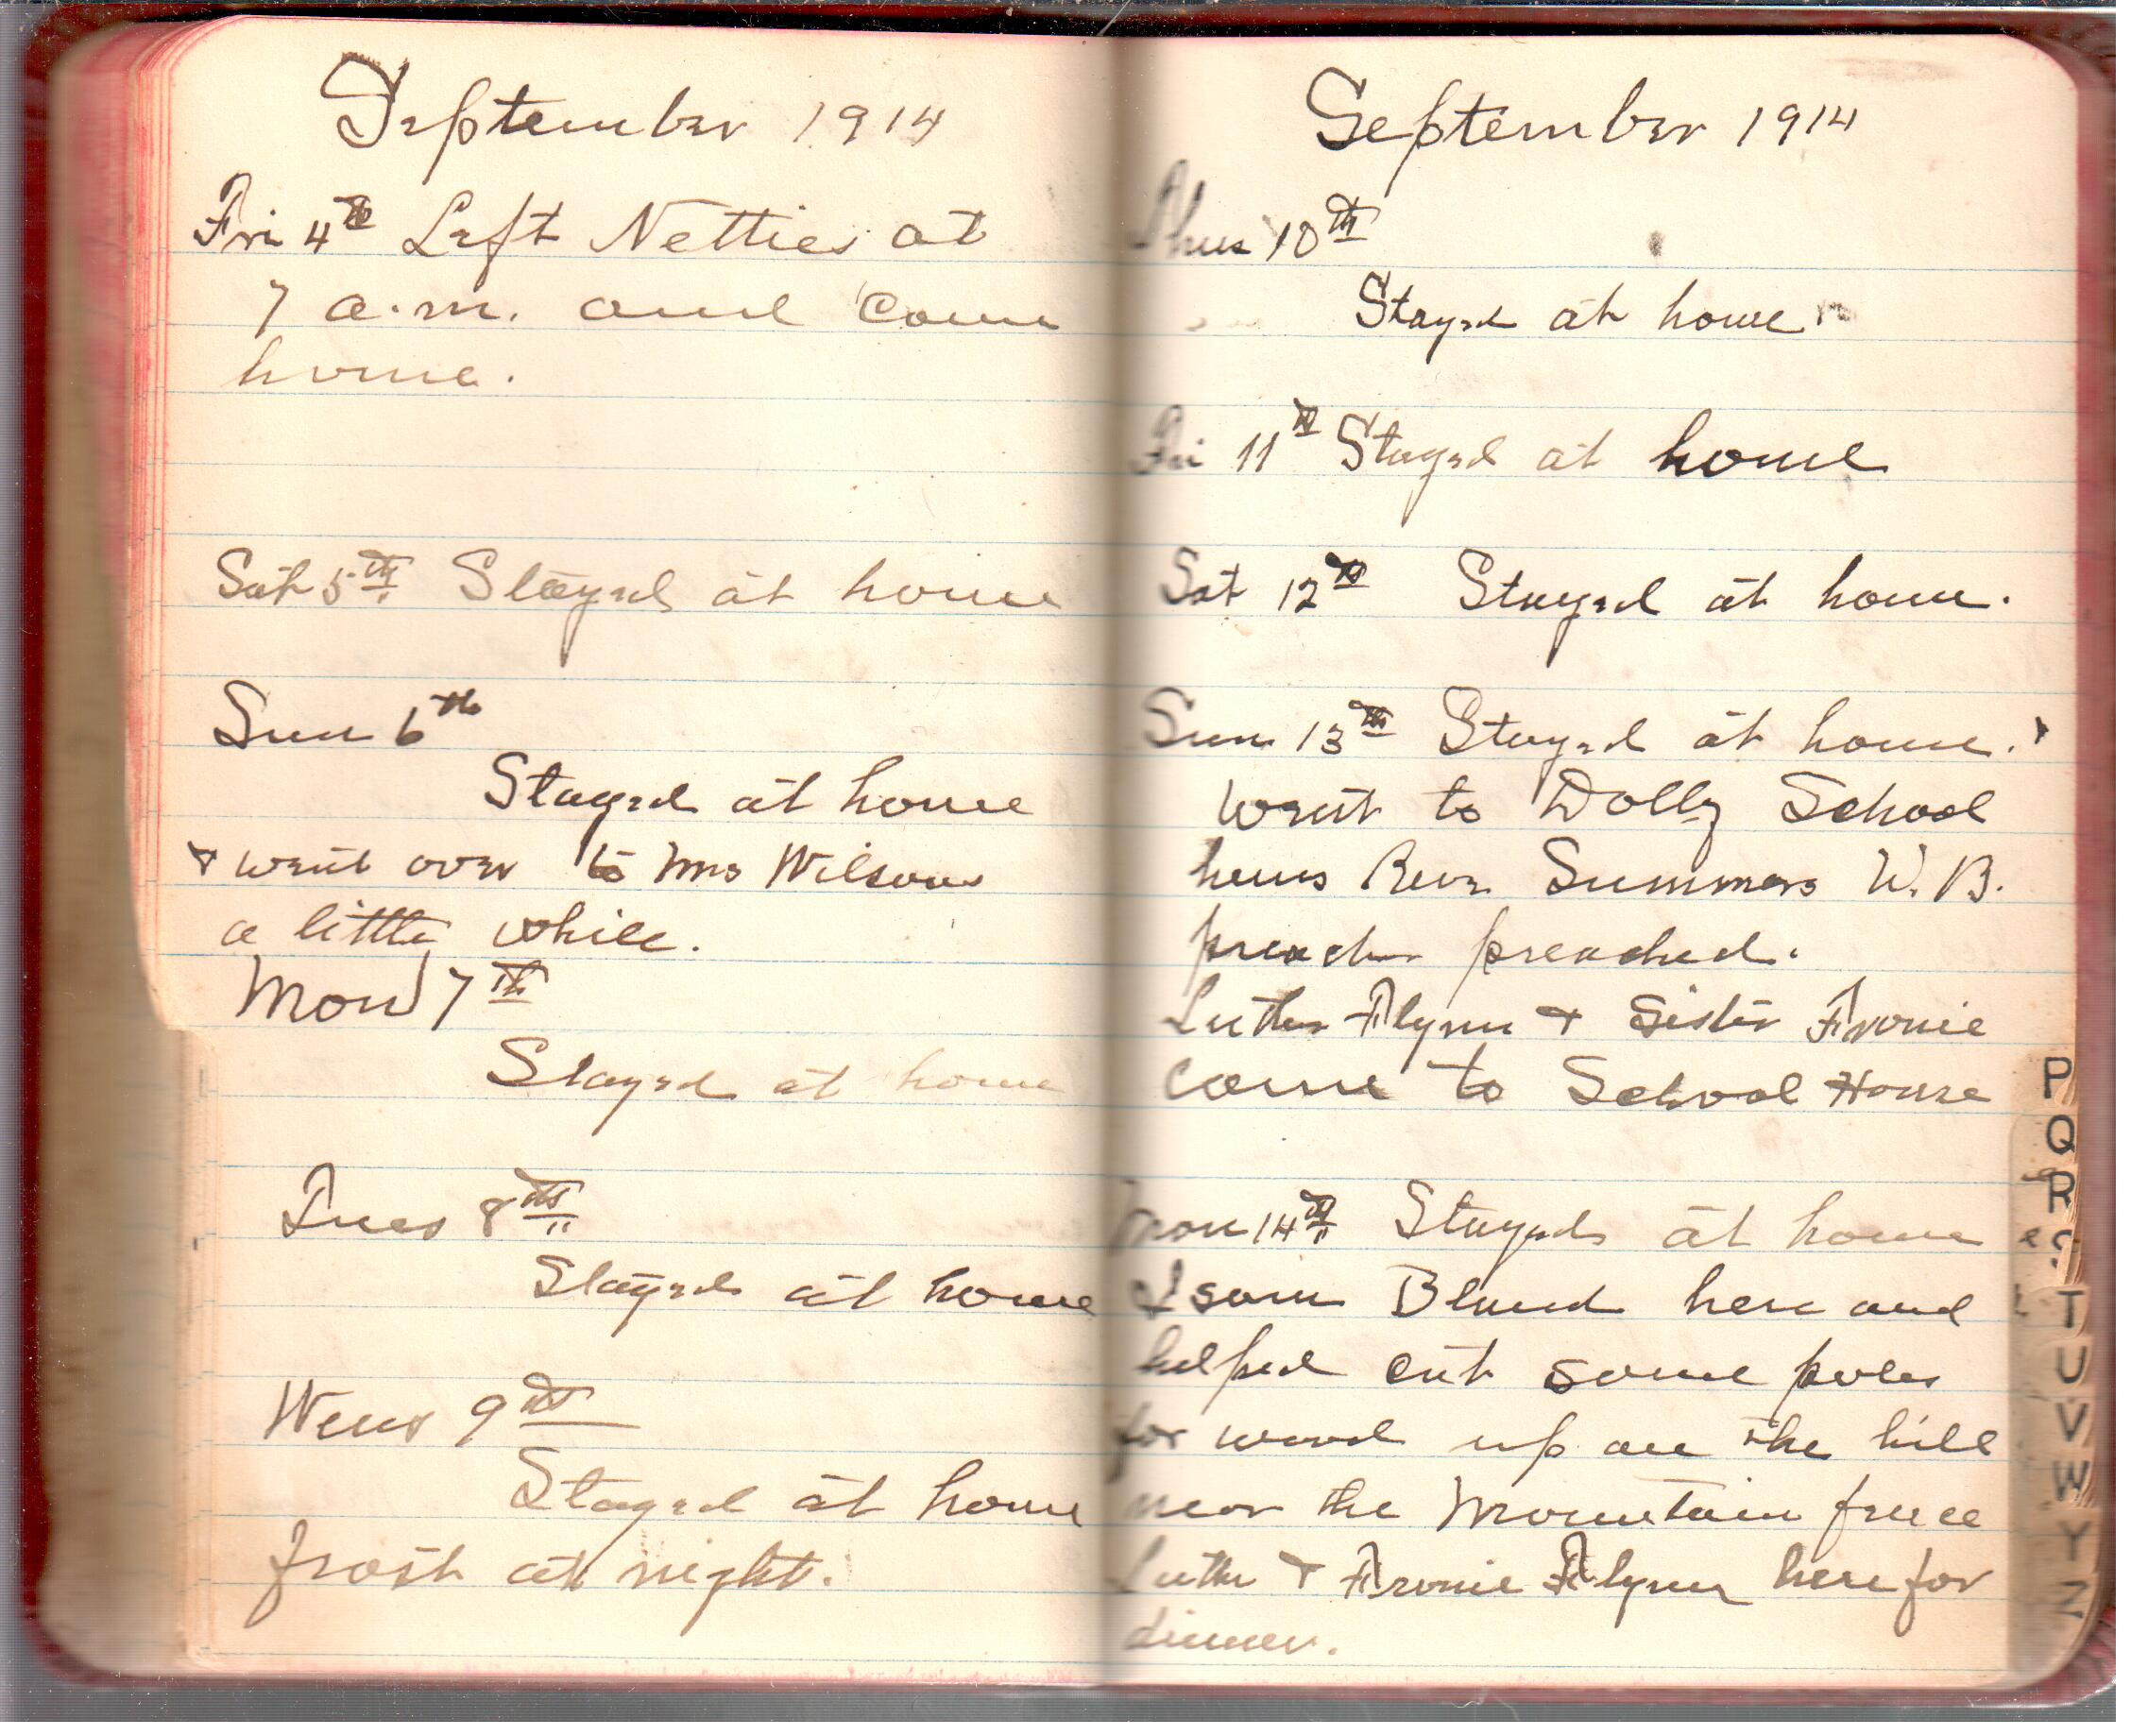 September 1914
Fri 4th Left Netties at
7 a.m. and come
home.
Sat 5th Stayed at home
Sun 6th
Stayed at home
& went over to Mrs Wilsons
a little while.
Mon 7th
Stayed at home
Tues 8th
Stayed at home
Wens 9th
Stayed at home
frost at night.
September 1914
Thus 10th
Stayed at home
Fri 11th Stayed at home
Sat 12th Stayed at home.
Sun 13th Stayed at home.
Went to Dolly School
hous Rev. Summers W. B.
preacher preached.
Luther Flynn & Sister Fronie
come to School House
Mon 14th Stayed at home
Isom Bland here and
helped cut some poles
for wood up on the hill
near the Mountain fence
Luther & Fronie Flynn here for
dinner.
P
Q
R
S
T
U
V
W
Y
Z